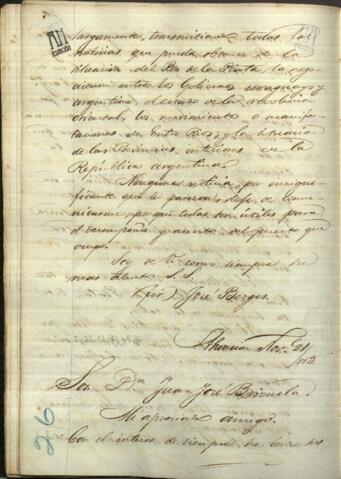 largamente, transmitirme todas las
noticias que pueda obtener de la
situacion del Rio de la Plata, la nego
ciacion entre los Gobiernos uruguayo y
argentino, el curso de la revolucion
oriental, los movimientos o manifes
taciones de Entre Rios, y la situacion
de las Provincias interiores de la
República argentina.
Ninguna noticia, por insigni
ficante que le parezca, deje de comu
nicarme, por que todas son utiles para
el desempeño y acierto del puesto que
ocupo.
Soy de V. como siempre su
mas atento S. S.
José Berges.
Asuncion Nov. 21/863
Sor. Dn. Juan José Brizuela.
Mi apreciado amigo.
Con el interes de siempre he leido
26